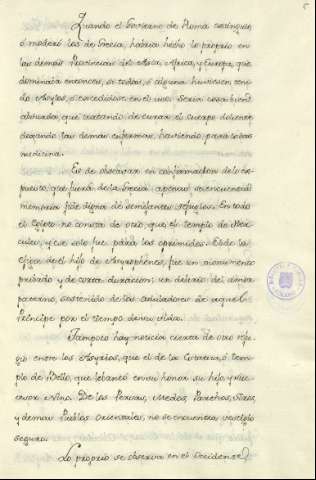 Quando el Govierno de Roma extinguió
ó moderó los de Grecia, habria hecho lo proprio en
las demás Provincias del Asia, Africa, y Europa, que
dominaba entonces, si todas, ó alguna huviesen teni-
do Asylos, ó excedidose en el uso. Seria cosa bien
absurda, que tratando de curar el cuerpo doliente
dejando las demás enfermas, haviendo para todas
medicina.
Es de observar en confirmacion de lo ex-
puesto, que fuera de la Grecia apenas se encuentra
memoria fide digna de semejantes refugios. En todo
el Egipto no consta de otro, que el templo de Her-
cules, y ese solo fue para los oprimidos. El de la
efigie del hijo de Asyrophenes, fue un monumento
privado y de corta duracion: un delirio del amor
paterno, sostenido de los aduladores de aquel
Principe por el tiempo de su vida.
Tampoco hay noticia cierta de otro refu-
gio entre los Asyrios, que el de la Estatua, ó tem-
plo de Belo, que levantó en su honor su hijo y suc-
cesor Nino. De los Persas, Medos, Parthos, Sirios,
y demas Pueblos Orientales, no se encuentra vestigio
seguro.
Lo proprio se observa en el Occidente